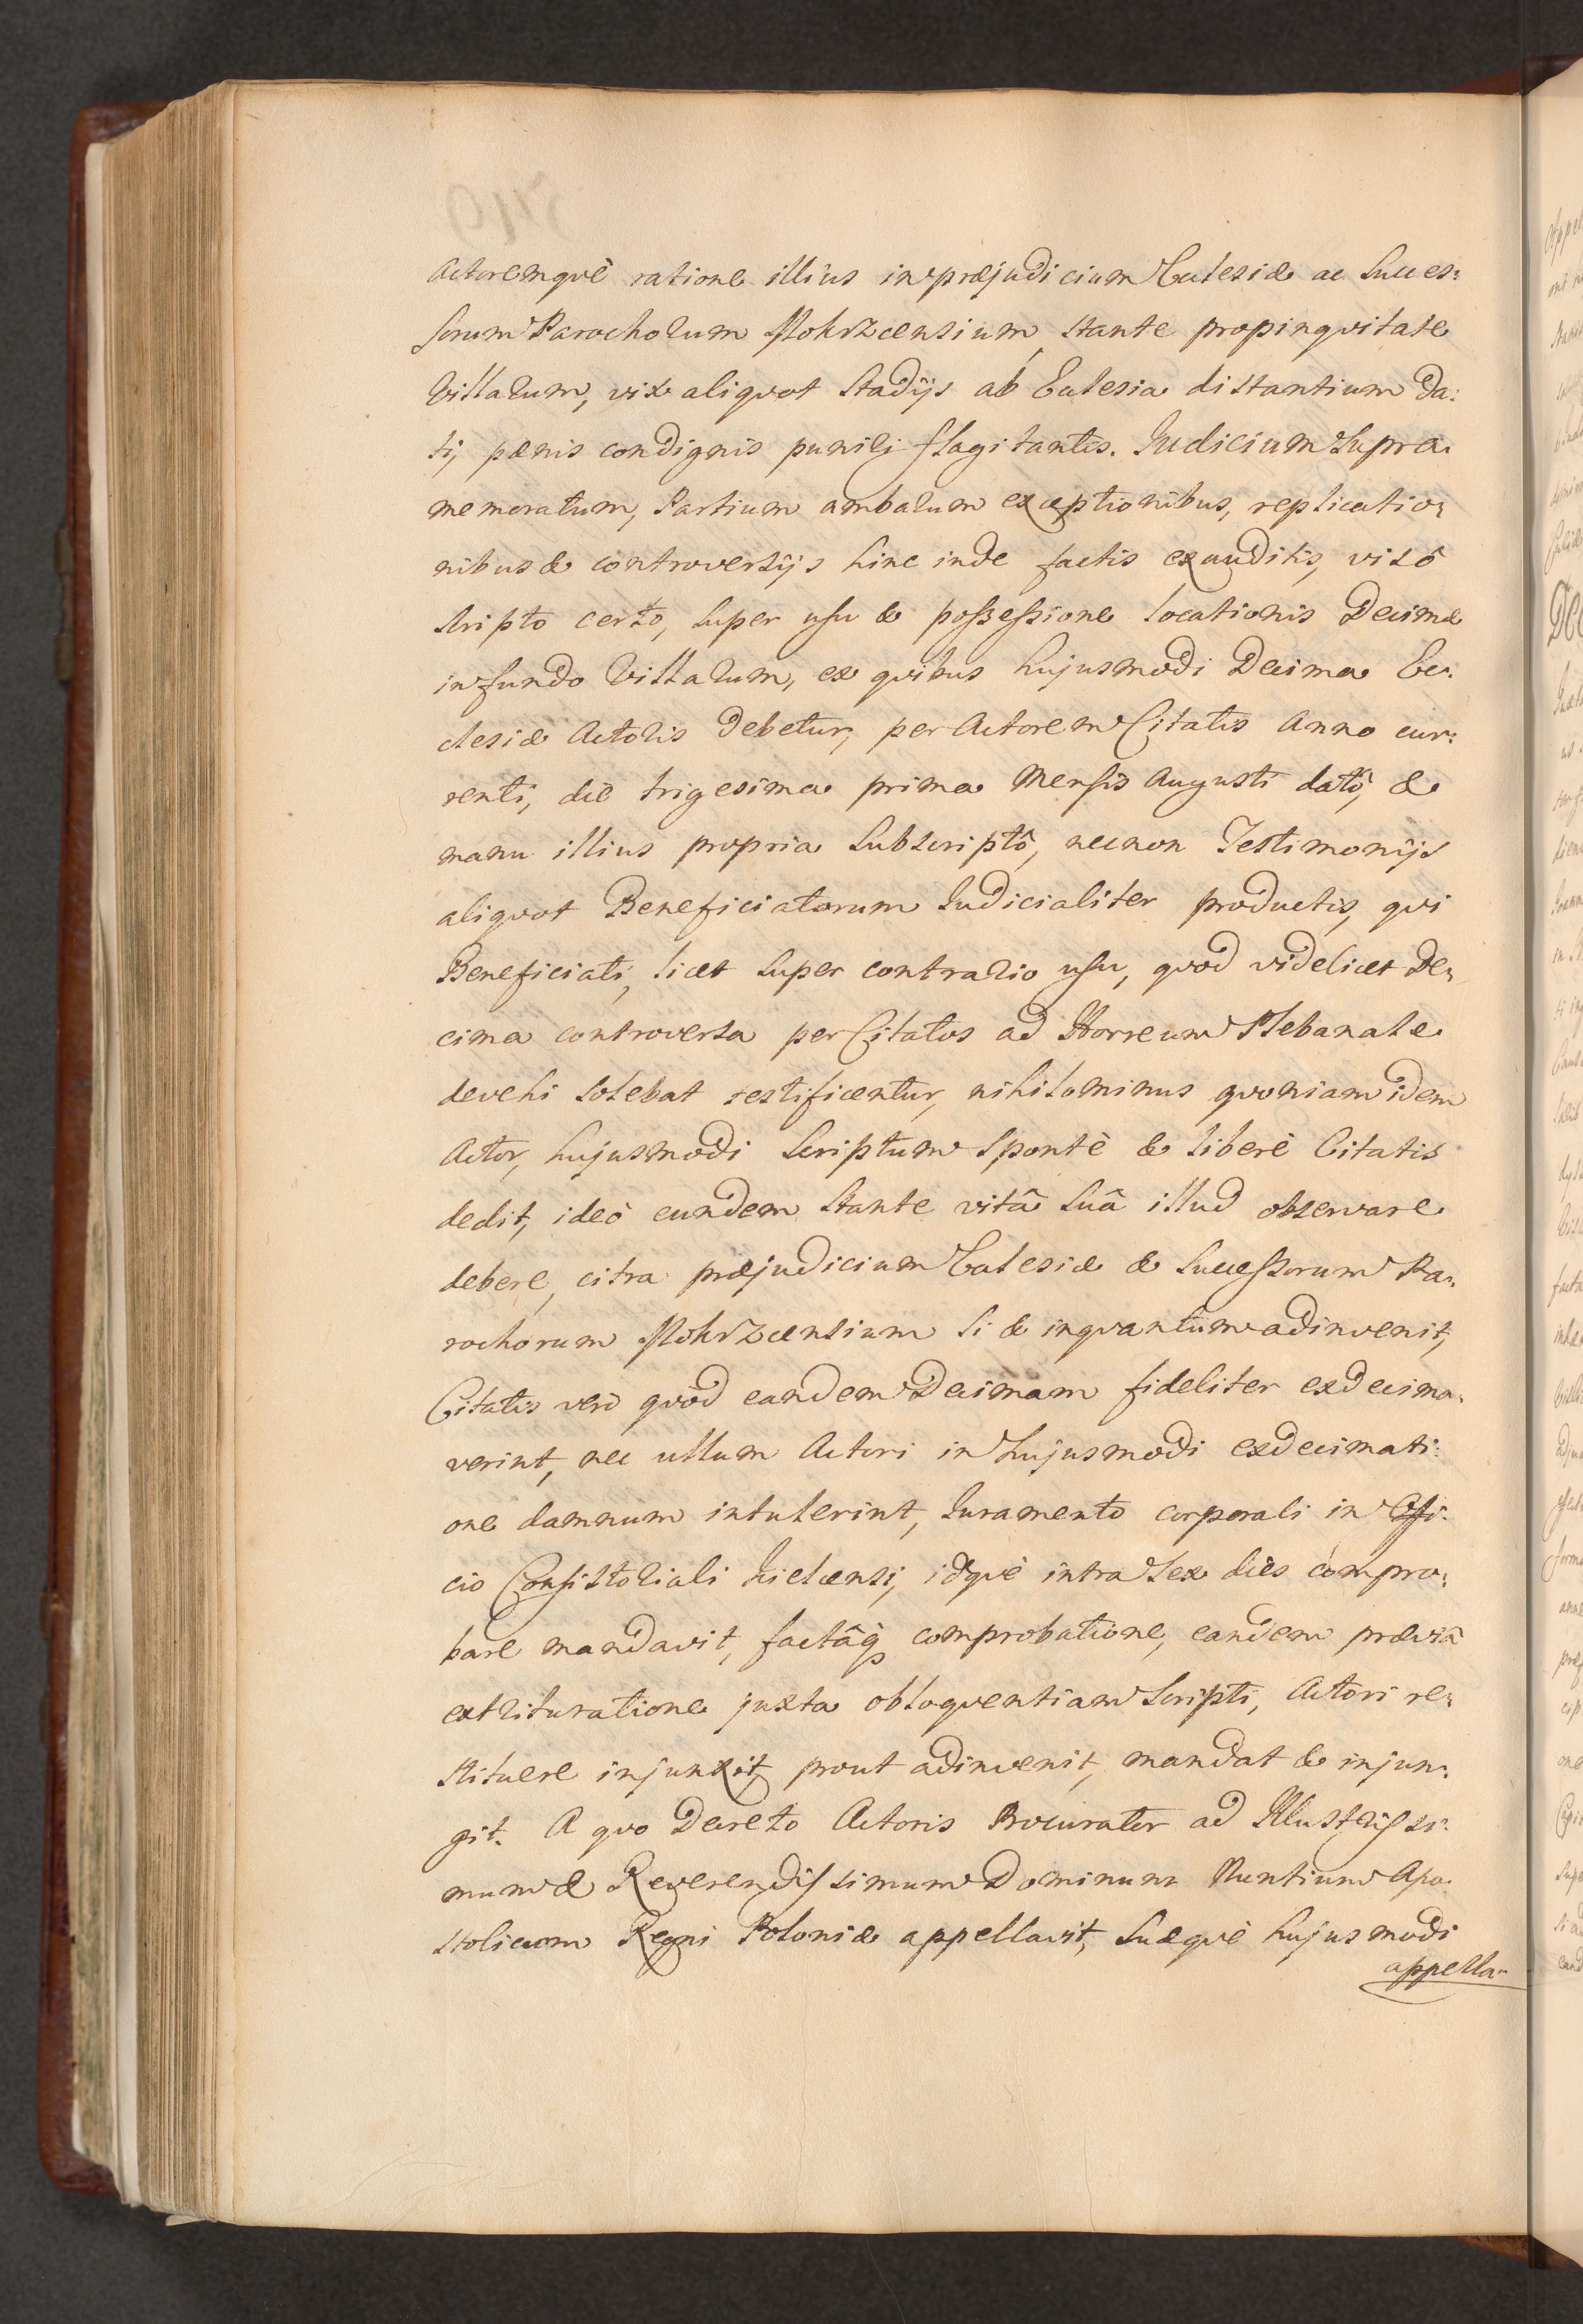 Actoremquè ratione illius in præjudicium Ecclesiæ ac Succes:
sorum Parochorum Mokrzcensium, stante propinqvitate
Villarum, vix aliqvot Stadijs ab Ecclesia distantium Da:
ti, pœnis condignis puniri flagitantis. Judicium Supra:
memoratum, Partium ambarum exceptionibus, replicatio:
nibus & controversijs hinc inde factis exauditis, visô
scripto certo, super usu & possessione locationis Decimæ
in fundo Villarum, ex qvibus hujusmodi Decima Ec:
clesiæ Actoris debetur, per Actorem Citatis Anno cur:
renti, die trigesima prima Mensis Augusti datô, &
manu illius propria Subscriptô, necnon Testimonijs
aliqvot Beneficiatorum Judicialiter productis, qvi
Beneficiati, licet super contrario usu, qvod videlicet De:
cima controversa per Citatos ad Horreum Plebanale
devehi solebat testificentur, nihilominus qvoniam idem
Actor, hujusmodi Scriptum Spontè & liberè Citatis
dedit, ideò eundem Stante vitâ Suâ illud observare
debere, citra præjudicium Ecclesiæ & Successorum Pa:
rochorum Mokrzcensium si & inqvantum adinvenit,
Citatis verò qvòd eandem Decimam fideliter exdecima:
verint, nec ullum Actori in hujusmodi exdecimati:
one damnum intulerint, Juramento corporali in Offi:
cio Consistoriali Kielcensi, idqvè intra Sex dies compro:
bare mandavit, factâq; comprobatione, eandem præviâ
extrituratione juxta obloqventiam Scripti, Actori re:
stituere injunxit, prout adinvenit, mandat & injun:
git. A qvo Decreto Actoris Procurator ad Illustrissi:
mum & Reverendissimum Dominum Nuntium Apo:
stolicum Regni Poloniæ appellavit, Suæqvè hujusmodi
appella-